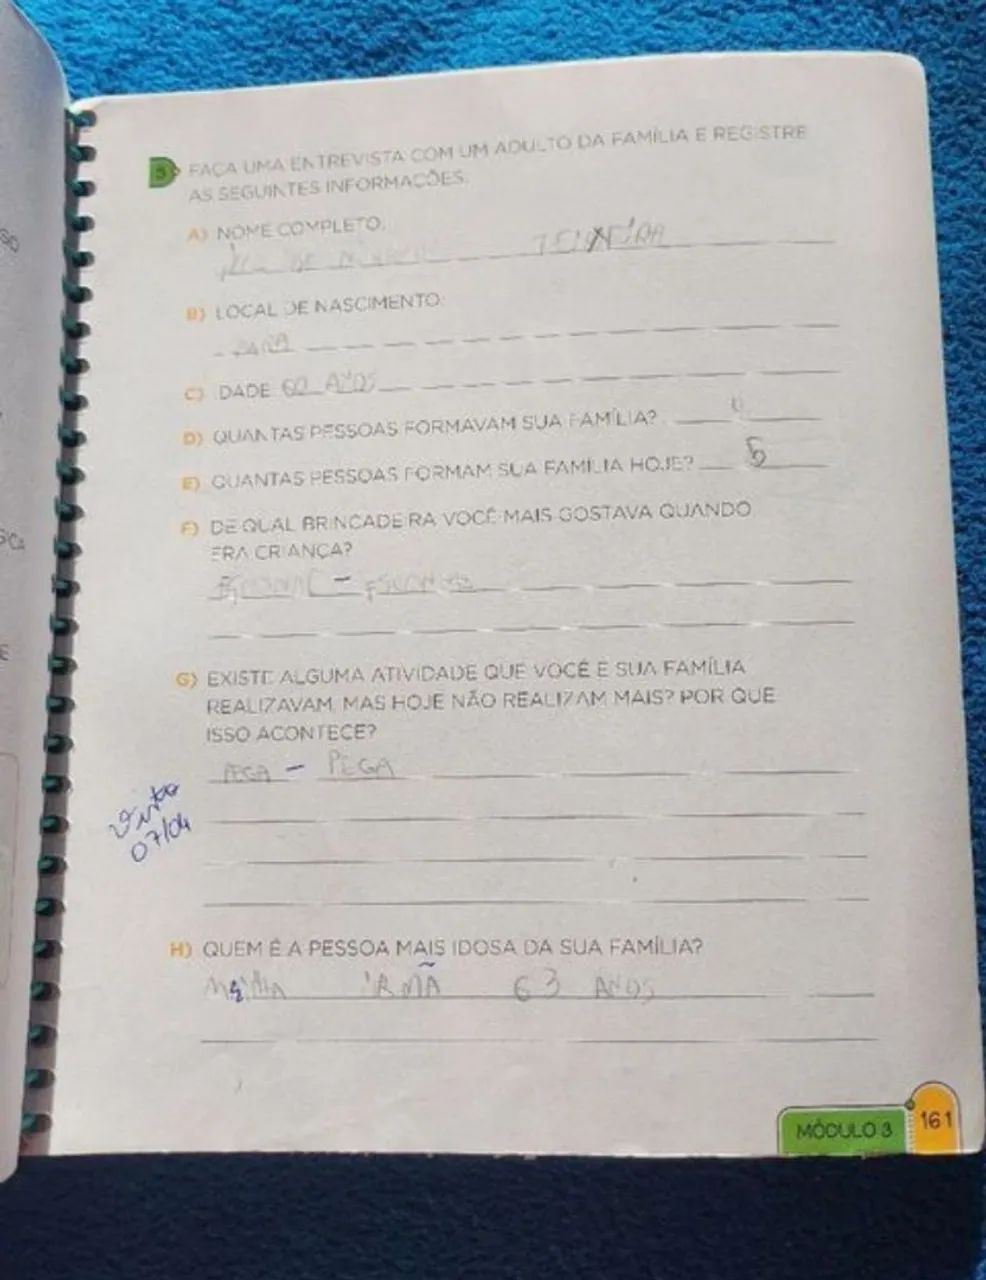 5 FAÇA UMA ENTREVISTA COM UM ADULTO DA FAMÍLIA E REGISTRE
AS SEGUINTES INFORMAÇÕES.
A) NOME COMPLETO:
DE TEIXEIRA
B) LOCAL DE NASCIMENTO:
PARÁ
C) IDADE: 60 ANOS
D) QUANTAS PESSOAS FORMAVAM SUA FAMÍLIA? 4
E) QUANTAS PESSOAS FORMAM SUA FAMÍLIA HOJE? 5
F) DE QUAL BRINCADEIRA VOCÊ MAIS GOSTAVA QUANDO
ERA CRIANÇA?
G) EXISTE ALGUMA ATIVIDADE QUE VOCÊ E SUA FAMÍLIA
REALIZAVAM, MAS HOJE NÃO REALIZAM MAIS? POR QUE
ISSO ACONTECE?
PEGA - PEGA
Visto
07/04
H) QUEM É A PESSOA MAIS IDOSA DA SUA FAMÍLIA?
IRMÃ 63 ANOS
MÓDULO 3 161